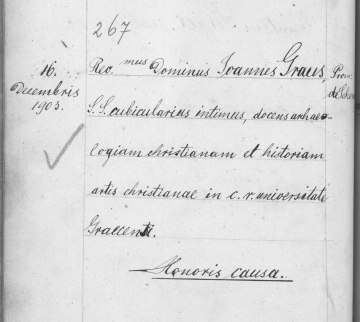 267
16.
Decembris
1903.
Rev.mus Dominus Joannes Graus,
S. S. cubicularius intimus, docens arhaeo-
logiam christianam et historiam
artis christianae in c. r. universitate
Graecensi.
Honoris causa.